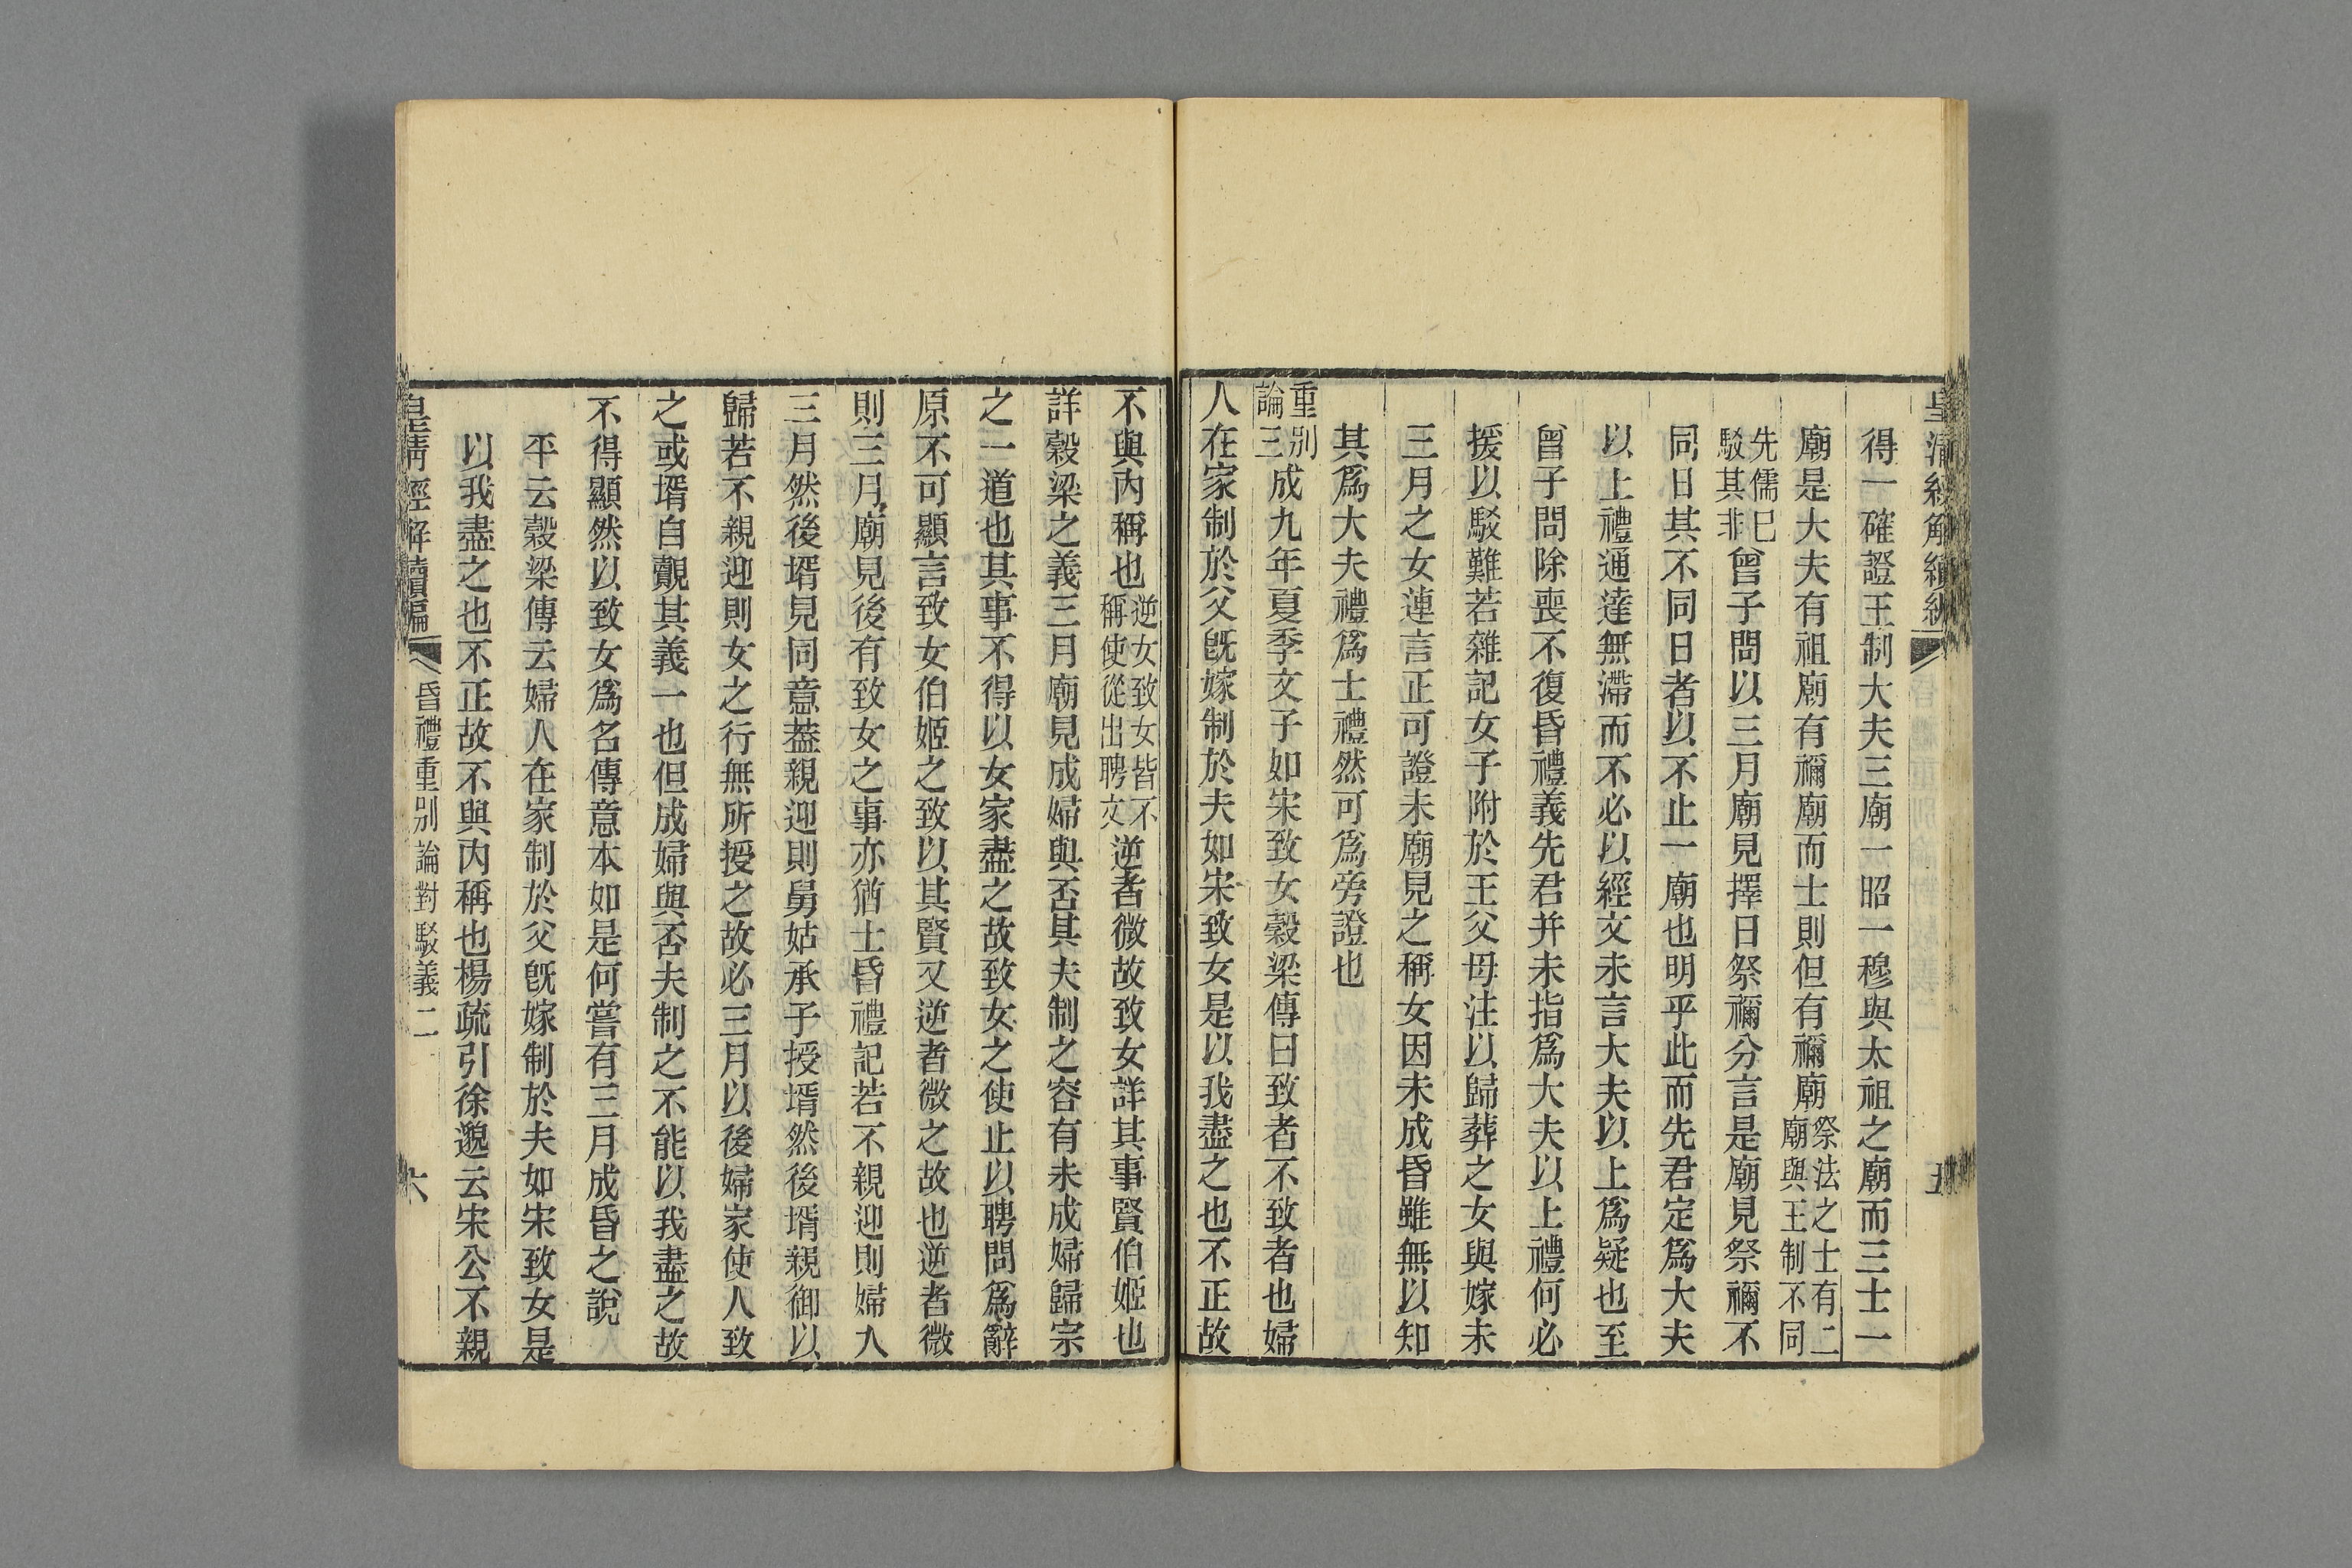 皇清經解續編
五
得一確證王制大夫三廟一昭一穆與太祖之廟而三士一
廟是大夫有祖廟有禰廟而士則但有禰廟祭法之士有二廟與王制不同
先儒巳駁其非曾子問以三月廟見擇日祭禰分言是廟見祭禰不
同日其不同日者以不止一廟也明乎此而先君定爲大夫
以上禮通達無滯而不必以經文未言大夫以上爲疑也至
曾子問除喪不復昏禮義先君并未指爲大夫以上禮何必
援以駁難若雜記女子附於王父母注以歸葬之女與嫁未
三月之女連言正可證未廟見之稱女因未成昏雖無以知
其爲大夫禮爲士禮然可爲旁證也
重別論三成九年夏季文子如宋致女穀梁傳曰致者不致者也婦
人在家制於父旣嫁制於夫如宋致女是以我盡之也不正故
不與內稱也逆女致女皆不稱使從出聘文逆者微故致女詳其事賢伯姬也
詳穀梁之義三月廟見成婦與否其夫制之容有未成婦歸宗
之一道也其事不得以女家盡之故致女之使止以聘問爲辭
原不可顯言致女伯姬之致以其賢又逆者微之故也逆者微
則三月廟見後有致女之事亦猶士昏禮記若不親迎則婦入
三月然後壻見同意葢親迎則舅姑承子授壻然後壻親御以
歸若不親迎則女之行無所授之故必三月以後婦家使人致
之或壻自覿其義一也但成婦與否夫制之不能以我盡之故
不得顯然以致女爲名傳意本如是何嘗有三月成昏之說
平云穀梁傳云婦人在家制於父旣嫁制於夫如宋致女是
以我盡之也不正故不與內稱也楊疏引徐邈云宋公不親
皇清經解續編
昏禮重別論對駁義二
六